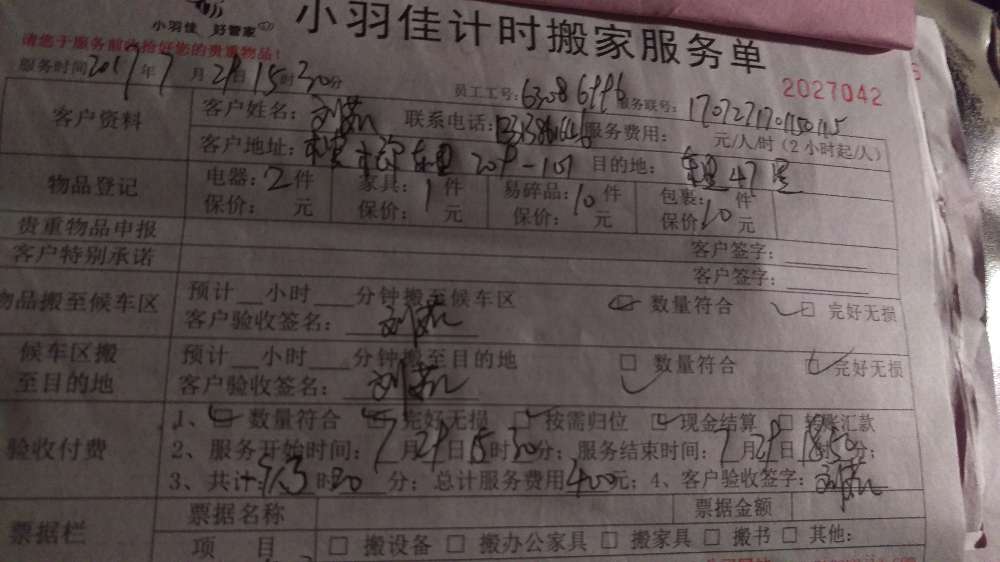 小羽佳 好管家
小羽佳计时搬家服务单
请您于服务前收拾好您的贵重物品！
2027042
服务时间2017年7月29日15时30分 员工工号: 服务联号:
客户资料 客户姓名: 联系电话: 服务费用: 元/人/时（2小时起/人）
客户地址: 209-101 目的地: 47
物品登记 电器:2件 家具:1件 易碎品:10件 包裹:10件
保价: 元 保价: 元 保价: 元 保价: 元
贵重物品申报 客户签字:
客户特别承诺 客户签字:
物品搬至候车区 预计__小时__分钟搬至候车区 数量符合 ☑ 完好无损
客户验收签名:
候车区搬至目的地 预计__小时__分钟搬至目的地 □ 数量符合 完好无损
客户验收签名:
验收付费 1、数量符合 完好无损 按需归位 现金结算 □ 转账汇款
2、服务开始时间:7月29日15时30分；服务结束时间:7月29日18时50分；
3、共计: 3时20分；总计服务费用400元；4、客户验收签字:
票据栏 票据名称 票据金额
项目 □ 搬设备 □ 搬办公家具 □ 搬家具 □ 搬书 □ 其他: